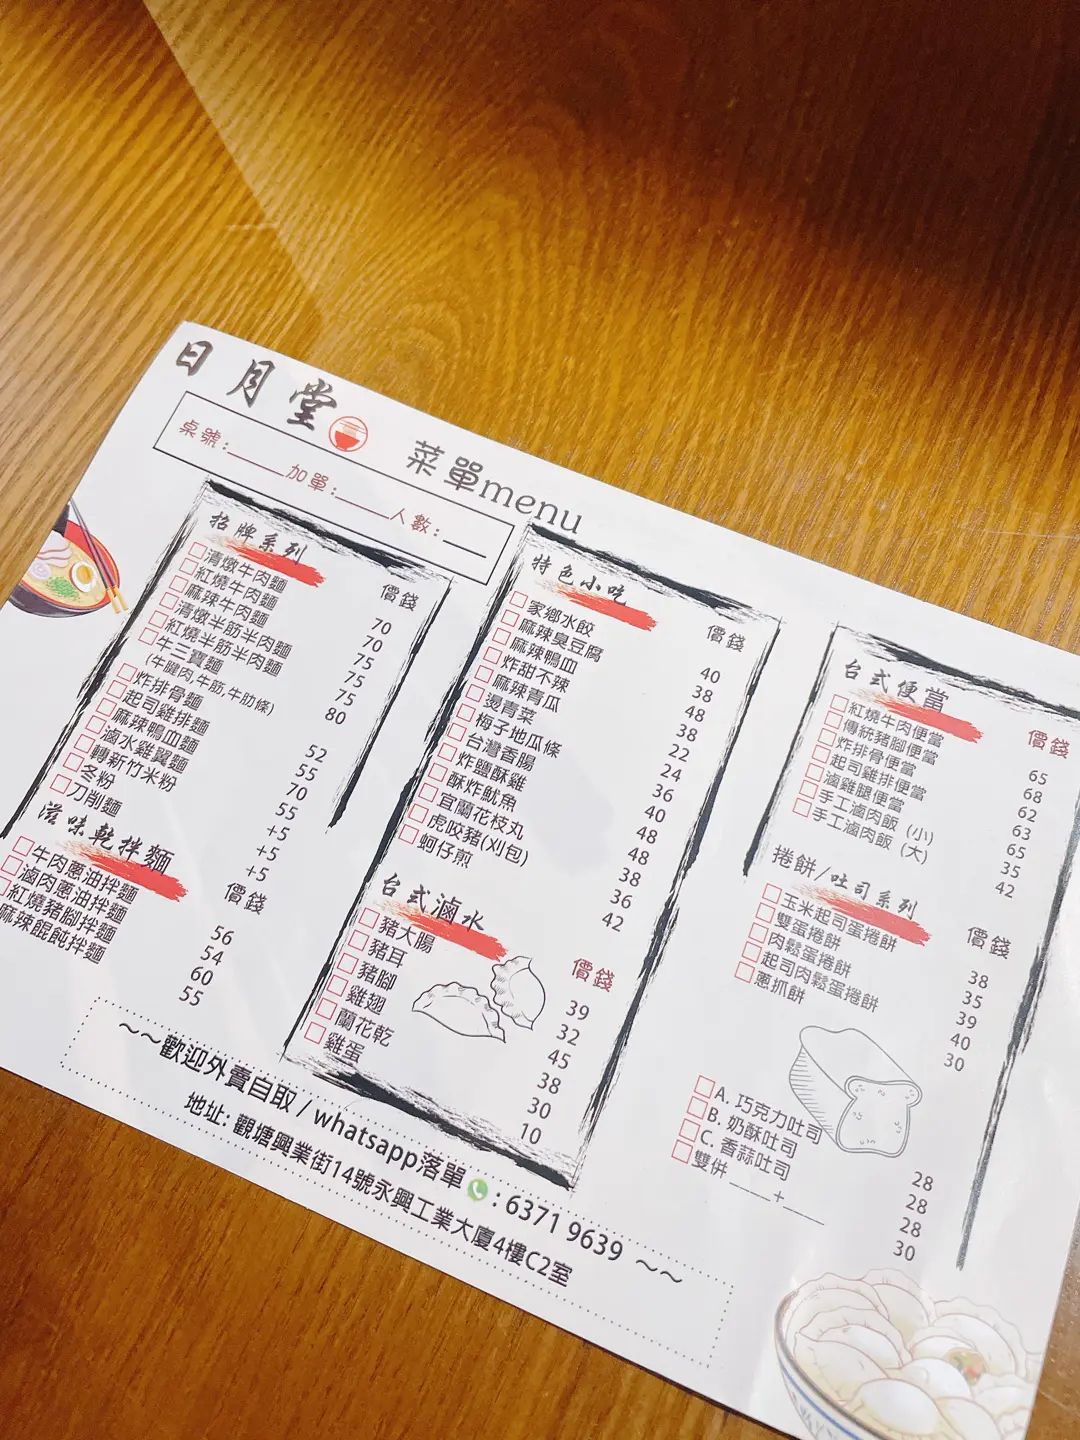 日月堂
菜單menu
桌號:____加單:____人數:____
招牌系列 價錢
清燉牛肉麵 70
紅燒牛肉麵 70
麻辣牛肉麵 75
清燉半筋半肉麵 75
紅燒半筋半肉麵 75
牛三寶麵 80
(牛腱肉,牛筋,牛肋條)
炸排骨麵 52
起司雞排麵 55
麻辣鴨血麵 70
滷水雞翼麵 55
轉新竹米粉 +5
冬粉 +5
刀削麵 +5
滋味乾拌麵 價錢
牛肉蔥油拌麵 56
滷肉蔥油拌麵 54
紅燒豬腳拌麵 60
麻辣餛飩拌麵 55
特色小吃 價錢
家鄉水餃 40
麻辣臭豆腐 38
麻辣鴨血 48
炸甜不辣 38
麻辣青瓜 22
燙青菜 24
梅子地瓜條 36
台灣香腸 40
炸鹽酥雞 48
酥炸魷魚 48
宜蘭花枝丸 38
虎咬豬(刈包) 36
蚵仔煎 42
台式滷水 價錢
豬大腸 39
豬耳 32
豬腳 45
雞翅 38
蘭花乾 30
雞蛋 10
台式便當 價錢
紅燒牛肉便當 65
傳統豬腳便當 68
炸排骨便當 62
起司雞排便當 63
滷雞腿便當 65
手工滷肉飯 (小) 35
手工滷肉飯 (大) 42
捲餅/吐司系列 價錢
玉米起司蛋捲餅 38
雙蛋捲餅 35
肉鬆蛋捲餅 39
起司肉鬆蛋捲餅 40
蔥抓餅 30
A. 巧克力吐司 28
B. 奶酥吐司 28
C. 香蒜吐司 28
雙併____+____ 30
~~歡迎外賣自取 / whatsapp落單 : 6371 9639 ~~
地址: 觀塘興業街14號永興工業大廈4樓C2室